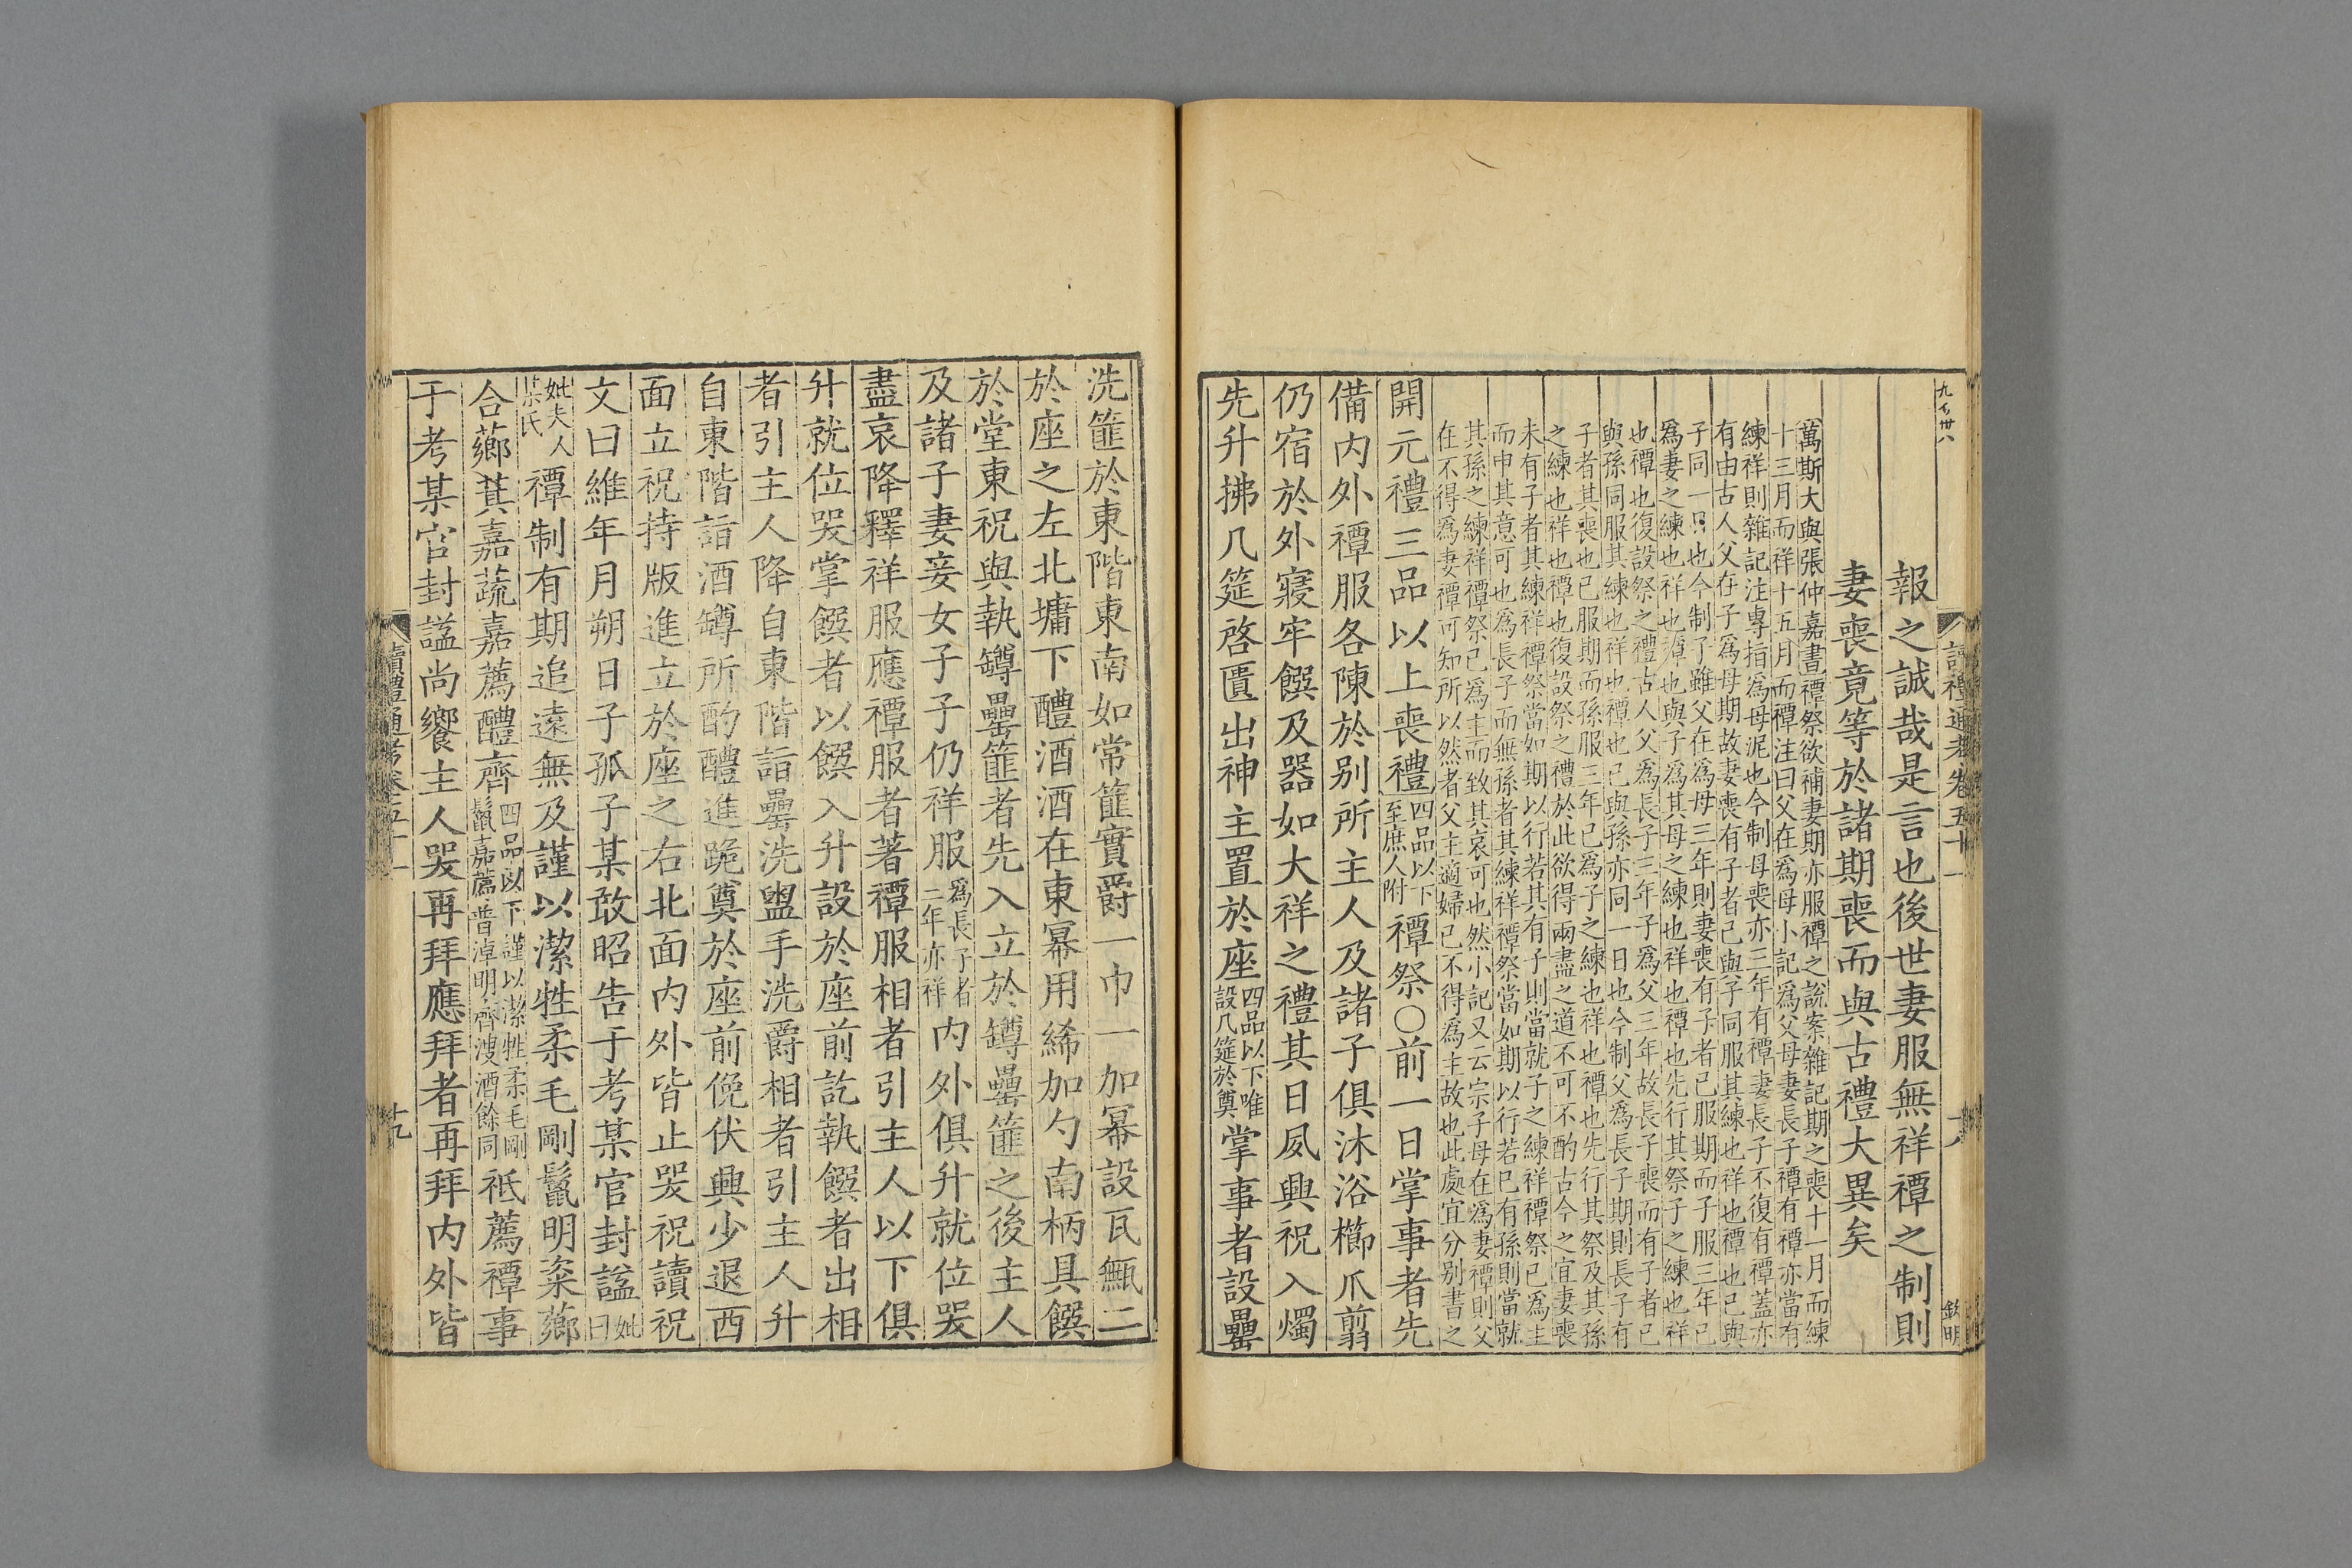 報之誠哉是言也後世妻服無祥禫之制則
妻喪竟等於諸期喪而與古禮大異矣
萬斯大與張仲嘉書禫祭欲補妻期亦服禫之說案雜記期之喪十一月而練
十三月而祥十五月而禫注曰父在爲母小記爲父母妻長子禫有禫亦當有
練祥則雜記注專指爲母泥也今制母喪亦三年有禫妻長子不復有禫蓋亦
有由古人父在子爲母期故妻喪有子者己與子同服其練也祥也禫也已與
子同一日也今制子雖父在爲母三年則妻喪有子者已服期而子服三年已
爲妻之練也祥也禫也與子爲其母之練也祥也禫也先行其祭子之練也祥
也禫也復設祭之禮古人父爲長子三年子爲父三年故長子喪而有子者已
與孫同服其練也祥也禫也已與孫亦同一日也今制父爲長子期則長子有
子者其喪也已服期而孫服三年已爲子之練也祥也禫也先行其祭及其孫
之練也祥也禫也復設祭之禮於此欲得兩盡之道不可不酌古今之宜妻喪
未有子者其練祥禫祭當如期以行若其有子則當就子之練祥禫祭已爲主
而申其意可也爲長子而無孫者其練祥禫祭當如期以行若已有孫則當就
其孫之練祥禫祭已爲主而致其哀可也然小記又云宗子母在爲妻禫則父
在不得爲妻禫可知所以然者父主適婦已不得爲主故也此處宜分別書之
開元禮三品以上喪禮四品以下
至庶人附禫祭○前一日掌事者先
備內外禫服各陳於别所主人及諸子俱沐浴櫛爪翦
仍宿於外寢牢饌及器如大祥之禮其日夙興祝入燭
先升拂几筵啓匱出神主置於座四品以下唯
設几筵於奠掌事者設罍
讀禮通考卷五十一
洗篚於東階東南如常篚實爵一巾一加冪設瓦甒二
於座之左北墉下醴酒酒在東冪用絺加勺南柄具饌
於堂東祝與執罇罍篚者先入立於罇罍篚之後主人
及諸子妻妾女子子仍祥服爲長子者
二年亦祥內外俱升就位哭
盡哀降釋祥服應禫服者著禫服相者引主人以下俱
升就位哭掌饌者以饌入升設於座前訖執饌者出相
者引主人降自東階詣罍洗盥手洗爵相者引主人升
自東階詣酒罇所酌醴進跪奠於座前俛伏興少退西
面立祝持版進立於座之右北面內外皆止哭祝讀祝
文曰維年月朔日子孤子某敢昭告于考某官封諡妣
曰
妣夫人
某氏禫制有期追遠無及謹以潔牲柔毛剛鬣明粢薌
合薌萁嘉蔬嘉薦醴齊四品以下謹以潔牲柔毛剛
鬣嘉薦普淖明齊溲酒餘同祗薦禫事
于考某官封諡尚饗主人哭再拜應拜者再拜內外皆
讀禮通考卷五十一
十九